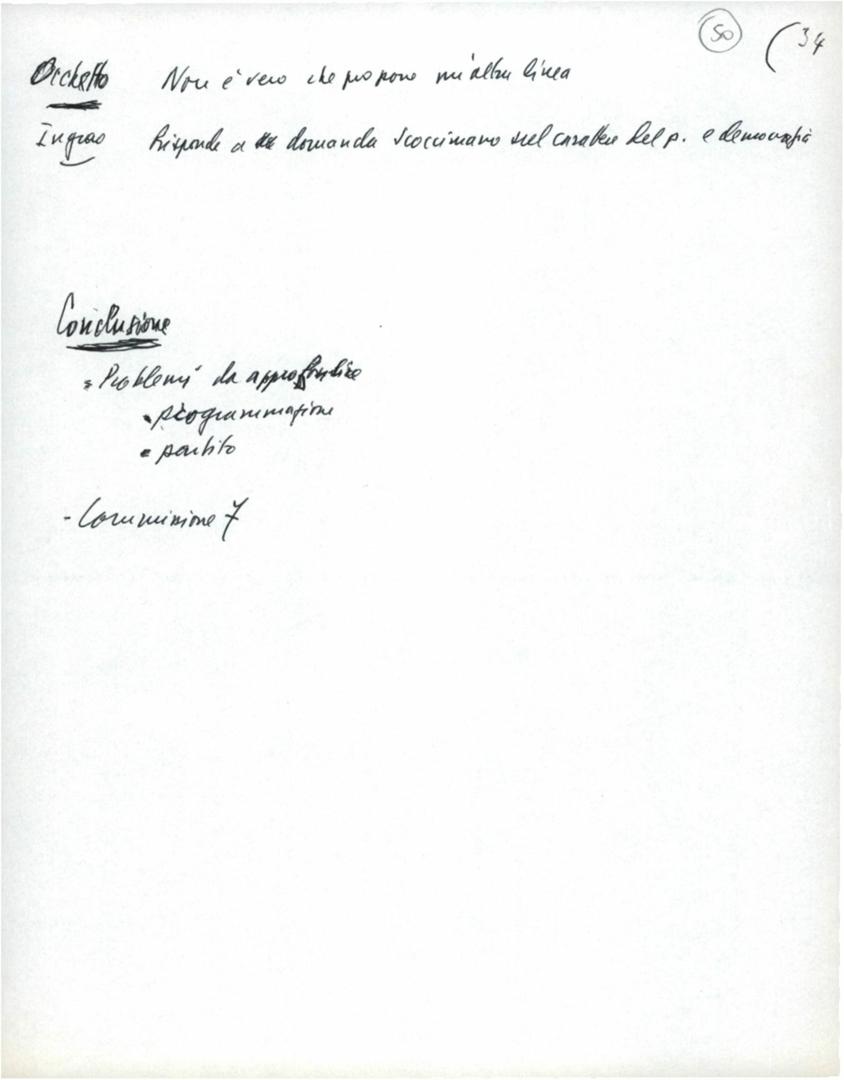 50 (34
Occhetto Non è vero che propone un'altra linea
Ingrao Risponde a domanda Scoccimarro sul carattere del p. e democrazia
Conclusione
- Problemi da approfondire
• programmazione
• partito
- Commissione 7